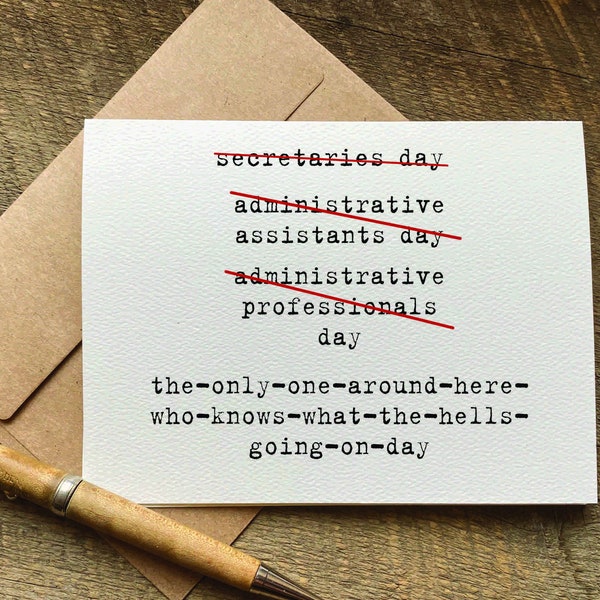 secretaries day
administrative
assistants day
administrative
professionals
day
the-only-one-around-here-
who-knows-what-the-hells-
going-on-day